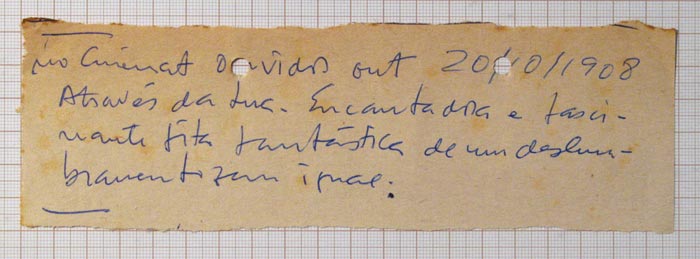 no Cinemat Ouvidor out 20/10/1908
Através da lua. Encantadora e fasci-
nante fita fantástica de um deslum-
bramento sem igual.